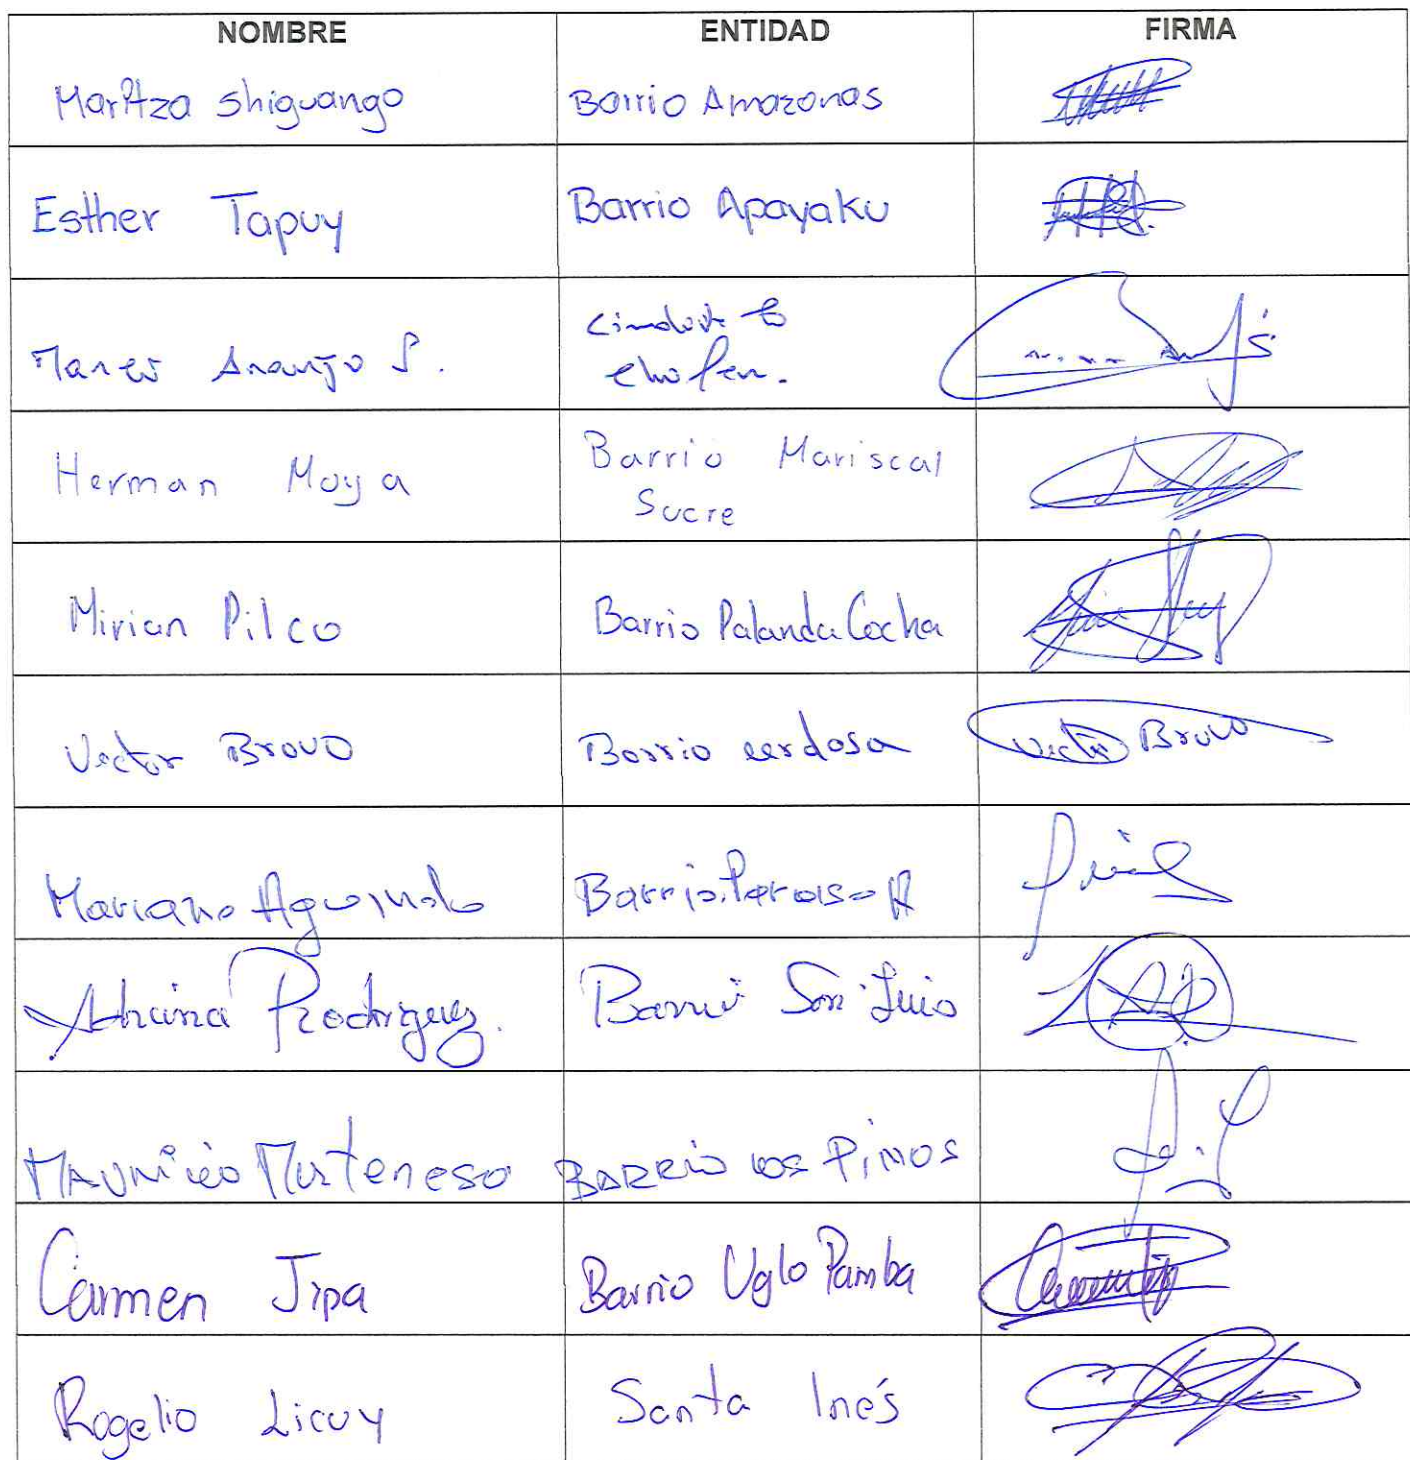 NOMBRE ENTIDAD FIRMA
Maritza Shiguango Barrio Amazonas
Esther Tapuy Barrio Apayaku
Araujo S.
chofer.
Herman Moya Barrio Mariscal
Sucre
Mirian Pilco Barrio Palanda Cocha
Victor Bravo Barrio cerdosa Victor Bravo
Mariano Aguinda Barrio Paraiso A
Rodriguez. Barrio San Luis
MAURicio BARRio Los PiNOS
Carmen Jipa Barrio Uglo Pamba
Rogelio Licuy Santa Inés